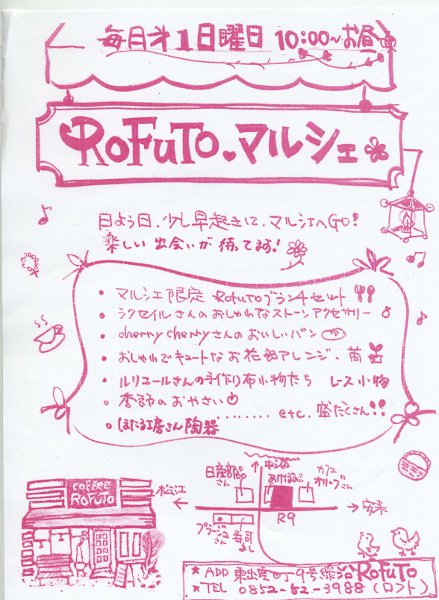 毎月第1日曜日 10:00~お昼
RoFuTo♥マルシェ
日よう日、少し早起きして、マルシェへGO!
楽しい出会いが待ってます!
・マルシェ限定 RoFuToブランチセット
・ラクセイルさんのおしゃれなストーンアクセサリー
・cherry cherryさんのおいしいパン
・おしゃれでキュートなお花、アレンジ、苗
・ルリユールさんの手作り布小物たち レース小物
・季節のおやさい
........ etc. 盛だくさん!!
・ほたる工房さん陶器
COFFEE
RoFuTo
松江
日産部品さん
中海
カフェ
安来
R9
寿司
*ADD 東出雲町 RoFuTo
*TEL 0852-52-3988 (ロフト)